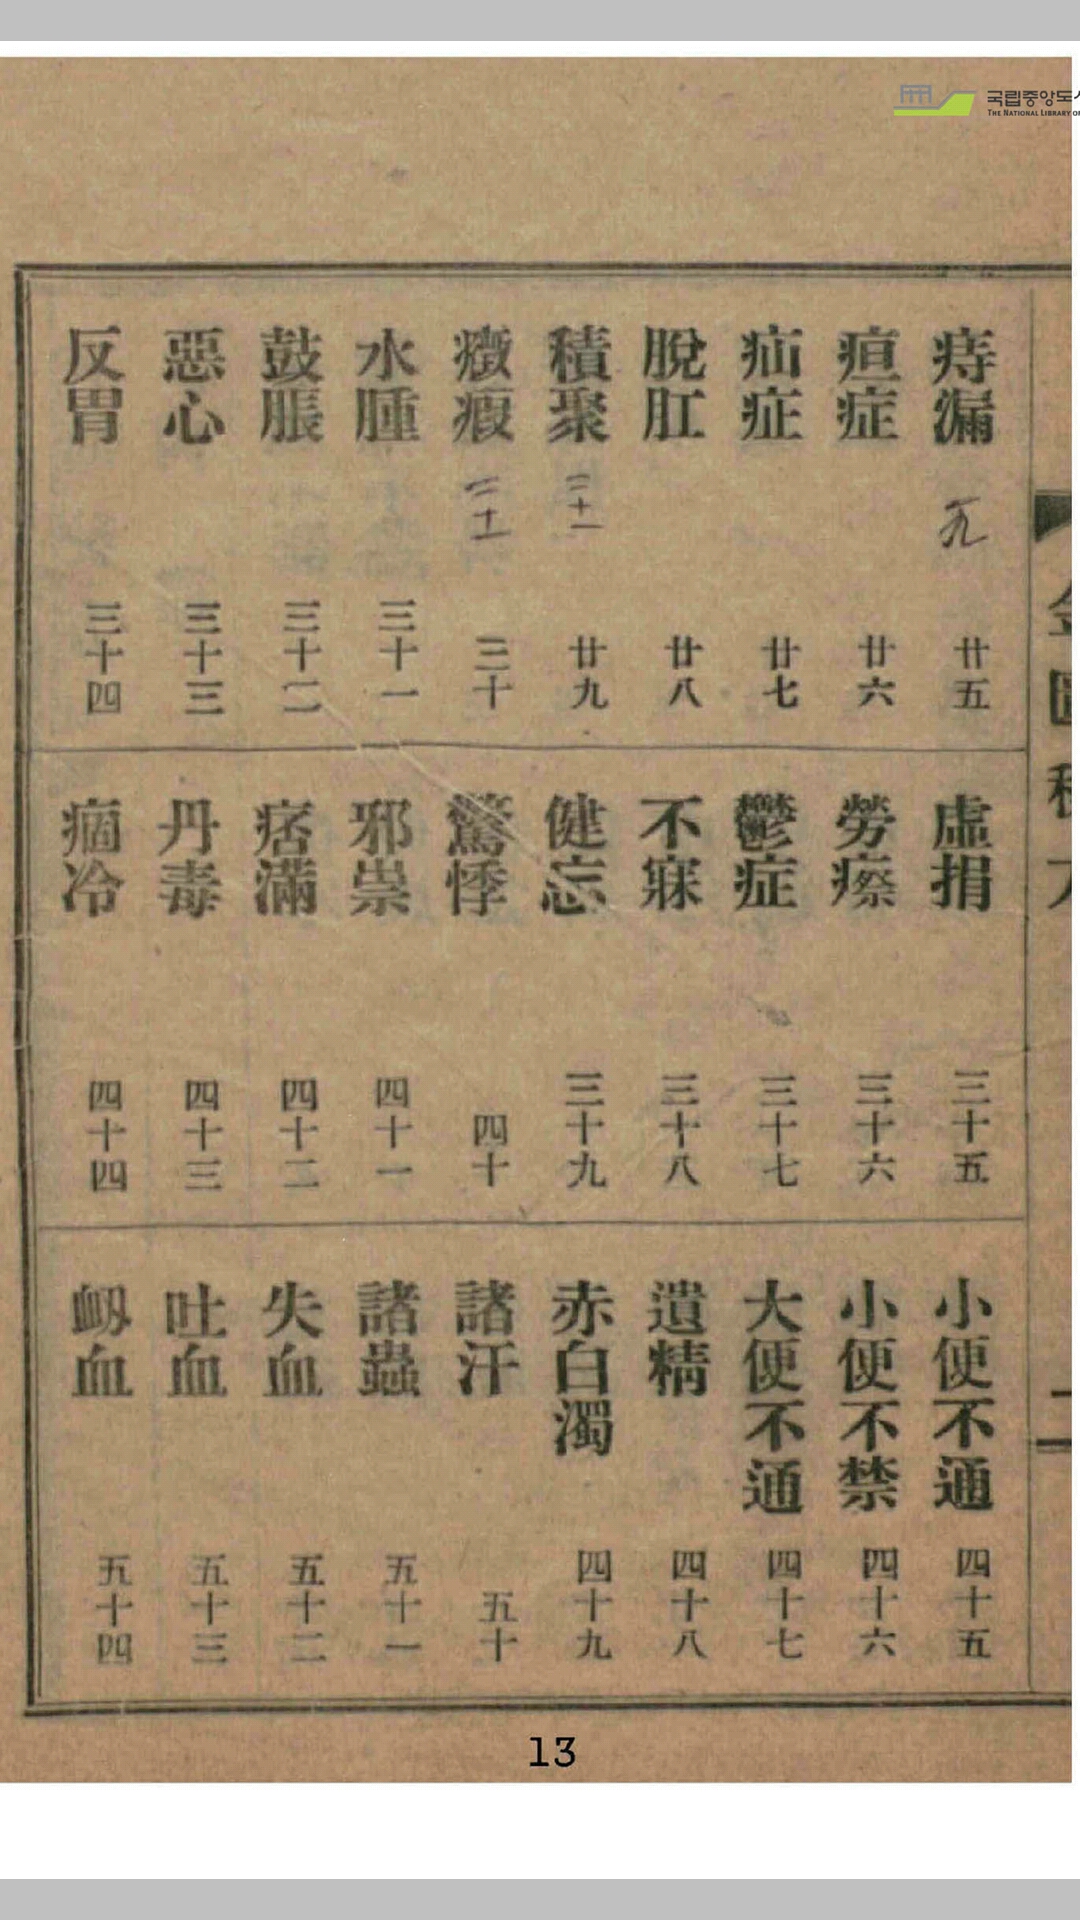 국립중앙도
THE NATIONAL LIBRARY
痔漏 九 廿五
疸症 廿六
疝症 廿七
脫肛 廿八
積聚 三十一 廿九
癥瘕 三十 三十
水腫 三十一
鼓脹 三十二
惡心 三十三
反胃 三十四
虛損 三十五
勞瘵 三十六
鬱症 三十七
不寐 三十八
健忘 三十九
驚悸 四十
邪祟 四十一
痞滿 四十二
丹毒 四十三
痼冷 四十四
小便不通 四十五
小便不禁 四十六
大便不通 四十七
遺精 四十八
赤白濁 四十九
諸汗 五十
諸蟲 五十一
失血 五十二
吐血 五十三
衂血 五十四
13